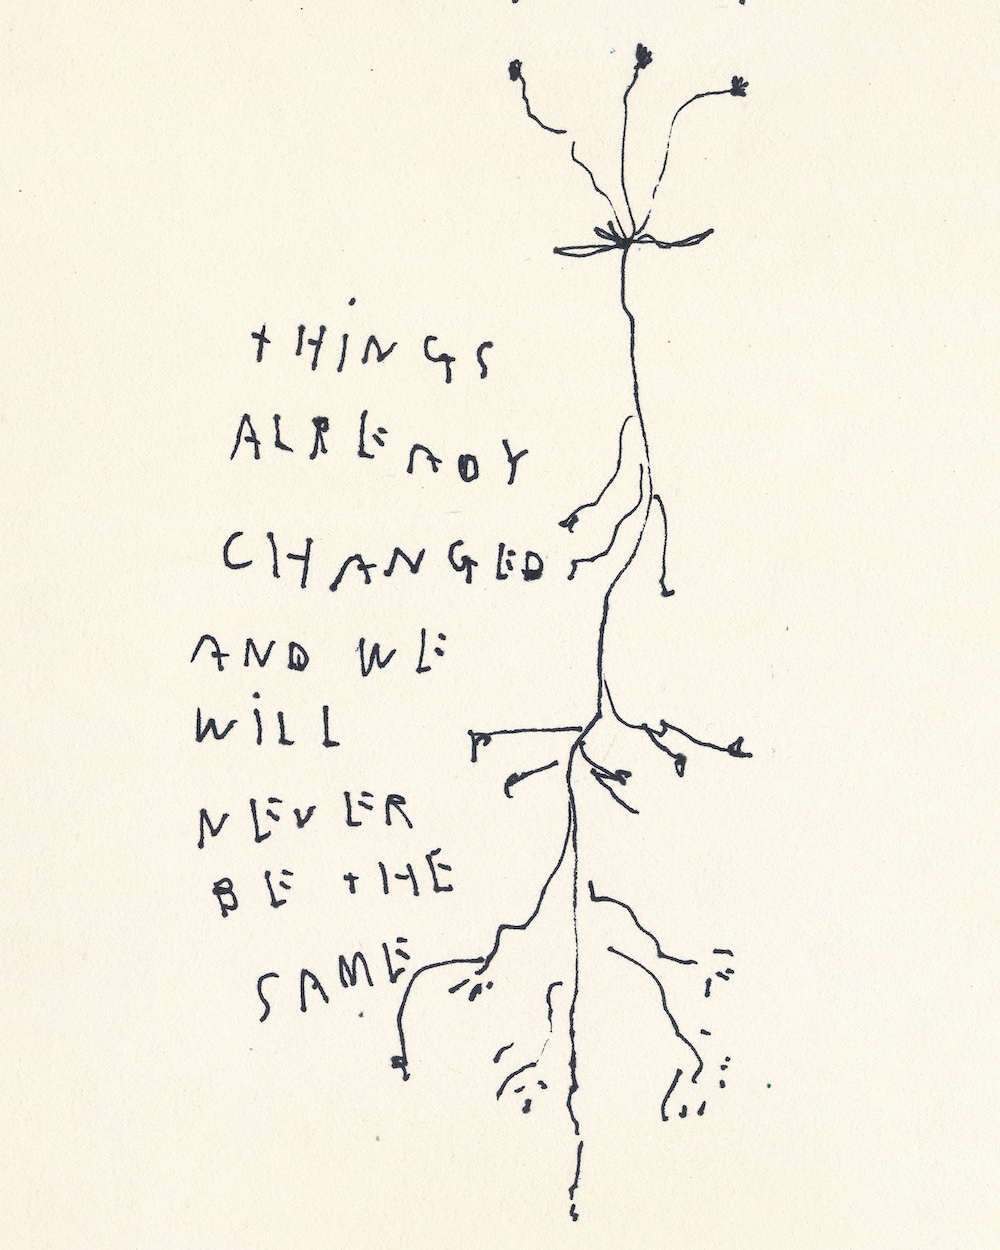 tHiNGS
ALREADY
CHANGED
AND WE
WiLL
NEVER
BE tHE
SAME